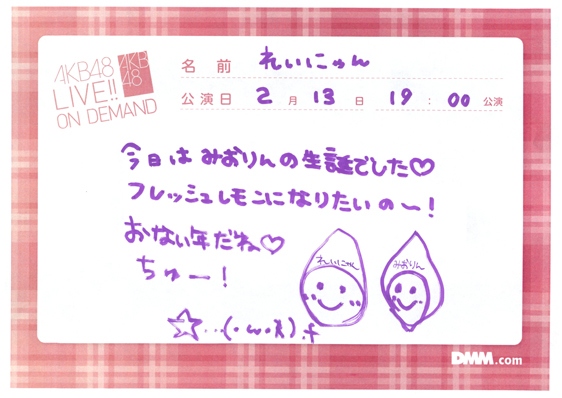 AKB48
LIVE!!
ON DEMAND
AKB
48
名前 れいにゃん
公演日 2月13日 19:00公演
今日はみおりんの生誕でした♡
フレッシュレモンになりたいの〜!
おない年だね♡
ちゅー!
れいにゃん
みおりん
☆...(・ω・
DMM.com